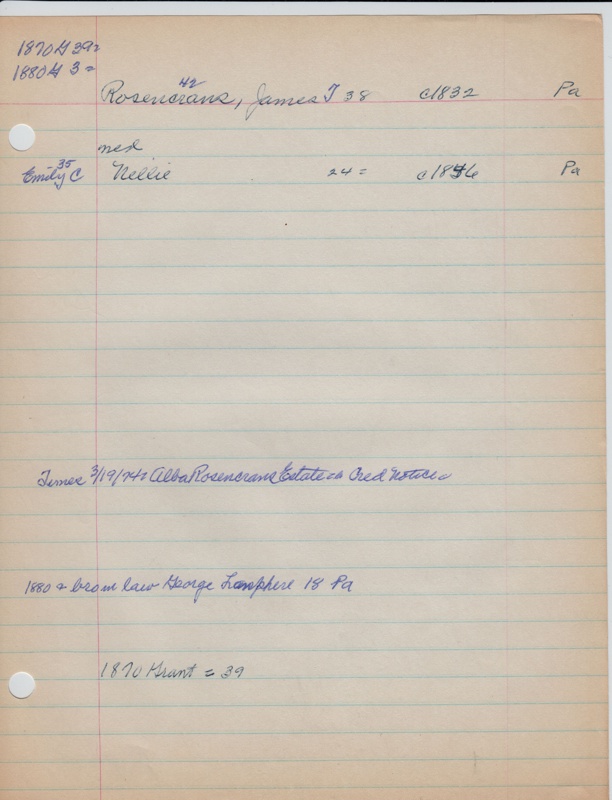 1870 G 39=
1880 G 3=
42
Rosencrans, James T 38 c1832 Pa
35
Emily C Nellie 24= c1846 Pa
Times 3/19/74= Alba Rosencrans Estate = Cred Notice =
1880 = bro in law George Lamphere 18 Pa
1870 Grant = 39